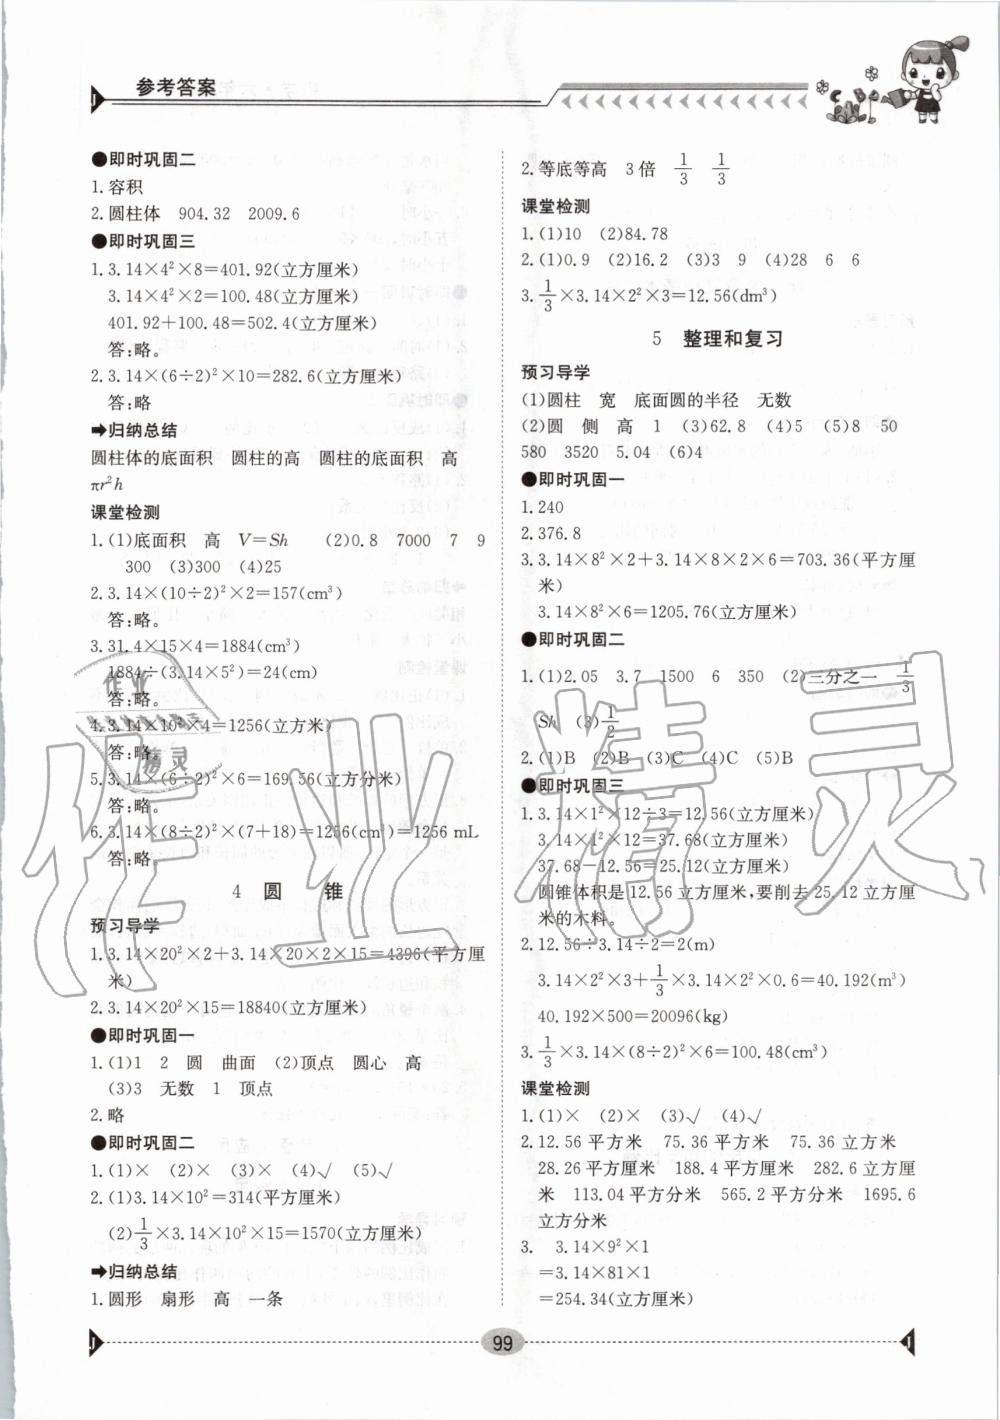 参考答案
●即时巩固二
1.容积
2.圆柱体 904.32 2009.6
●即时巩固三
1.3.14×4²×8=401.92(立方厘米)
3.14×4²×2=100.48(立方厘米)
401.92+100.48=502.4(立方厘米)
答:略。
2.3.14×(6÷2)²×10=282.6(立方厘米)
答:略
➡归纳总结
圆柱体的底面积 圆柱的高 圆柱的底面积 高
πr²h
课堂检测
1.(1)底面积 高 V=Sh (2)0.8 7000 7 9
300 (3)300 (4)25
2.3.14×(10÷2)²×2=157(cm³)
答:略。
3.31.4×15×4=1884(cm³)
1884÷(3.14×5²)=24(cm)
答:略。
4.3.14×10²×4=1256(立方米)
答:略。
5.3.14×(6÷2)²×6=169.56(立方分米)
答:略。
6.3.14×(8÷2)²×(7+18)=1256(cm³)=1256 mL
答:略。
4 圆 锥
预习导学
1.3.14×20²×2+3.14×20×2×15=4396(平方厘
米)
2.3.14×20²×15=18840(立方厘米)
●即时巩固一
1.(1)1 2 圆 曲面 (2)顶点 圆心 高
(3)3 无数 1 顶点
2.略
●即时巩固二
1.(1)× (2)× (3)× (4)√ (5)√
2.(1)3.14×10²=314(平方厘米)
(2)1/3×3.14×10²×15=1570(立方厘米)
➡归纳总结
1.圆形 扇形 高 一条
2.等底等高 3倍 1/3 1/3
课堂检测
1.(1)10 (2)84.78
2.(1)0.9 (2)16.2 (3)3 9 (4)28 6 6
3.1/3×3.14×2²×3=12.56(dm³)
5 整理和复习
预习导学
(1)圆柱 宽 底面圆的半径 无数
(2)圆 侧 高 1 (3)62.8 (4)5 (5)8 50
580 3520 5.04 (6)4
●即时巩固一
1.240
2.376.8
3.3.14×8²×2+3.14×8×2×6=703.36(平方厘
米)
3.14×8²×6=1205.76(立方厘米)
●即时巩固二
1.(1)2.05 3.7 1500 6 350 (2)三分之一 1/3
Sh (3)1/2
2.(1)B (2)B (3)C (4)C (5)B
●即时巩固三
1.3.14×1²×12÷3=12.56(立方厘米)
3.14×1²×12=37.68(立方厘米)
37.68-12.56=25.12(立方厘米)
圆锥体积是12.56立方厘米,要削去25.12立方厘
米的木料。
2.12.56÷3.14÷2=2(m)
3.14×2²×3+1/3×3.14×2²×0.6=40.192(m³)
40.192×500=20096(kg)
3.1/3×3.14×(8÷2)²×6=100.48(cm³)
课堂检测
1.(1)× (2)× (3)√ (4)√
2.12.56平方米 75.36平方米 75.36立方米
28.26平方厘米 188.4平方厘米 282.6立方厘
米 113.04平方分米 565.2平方分米 1695.6
立方分米
3. 3.14×9²×1
=3.14×81×1
=254.34(立方厘米)
99
作业精灵
作业
精灵